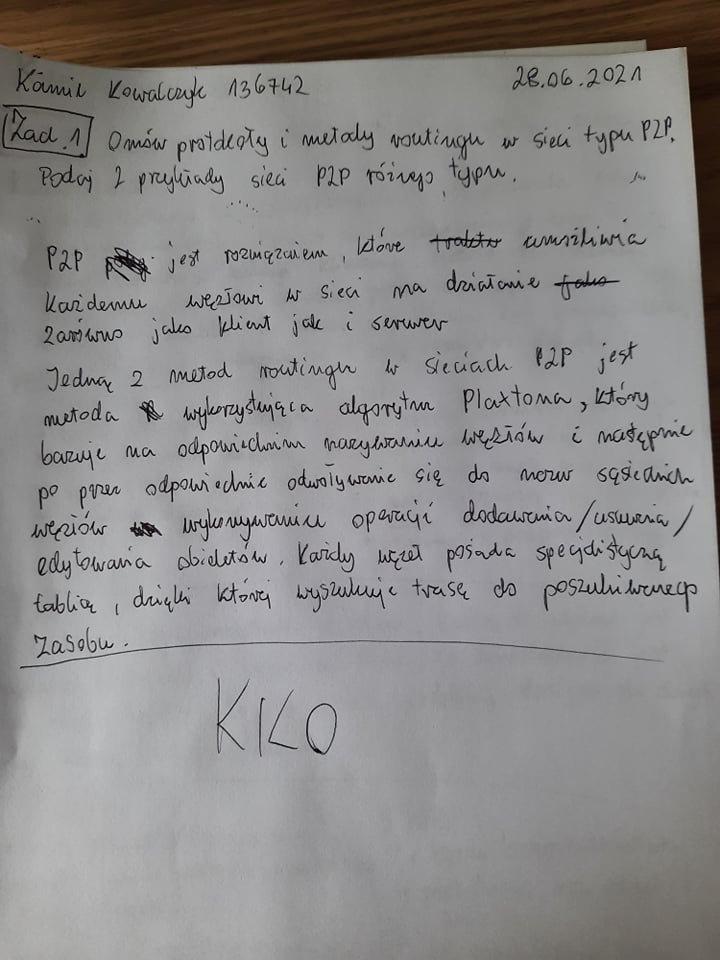 Kamil Kowalczyk 136742 28.06.2021
Zad.1 Omów protokoły i metody routingu w sieci typu P2P.
Podaj 2 przykłady sieci P2P różnego typu.
P2P jest rozwiązaniem, które umożliwia
każdemu węzłowi w sieci na działanie
zarówno jako klient jak i serwer
Jedną z metod routingu w sieciach P2P jest
metoda wykorzystująca algorytm Plaxtona, który
bazuje na odpowiednim nazywaniu węzłów i następnie
po przez odpowiednie odwoływanie się do nazw sąsiednich
węzłów wykonywaniu operacji dodawania/usuwania/
edytowania obiektów. Każdy węzeł posiada specjalistyczną
tablicę, dzięki której wyszukuje trasę do poszukiwanego
zasobu.
KIKO